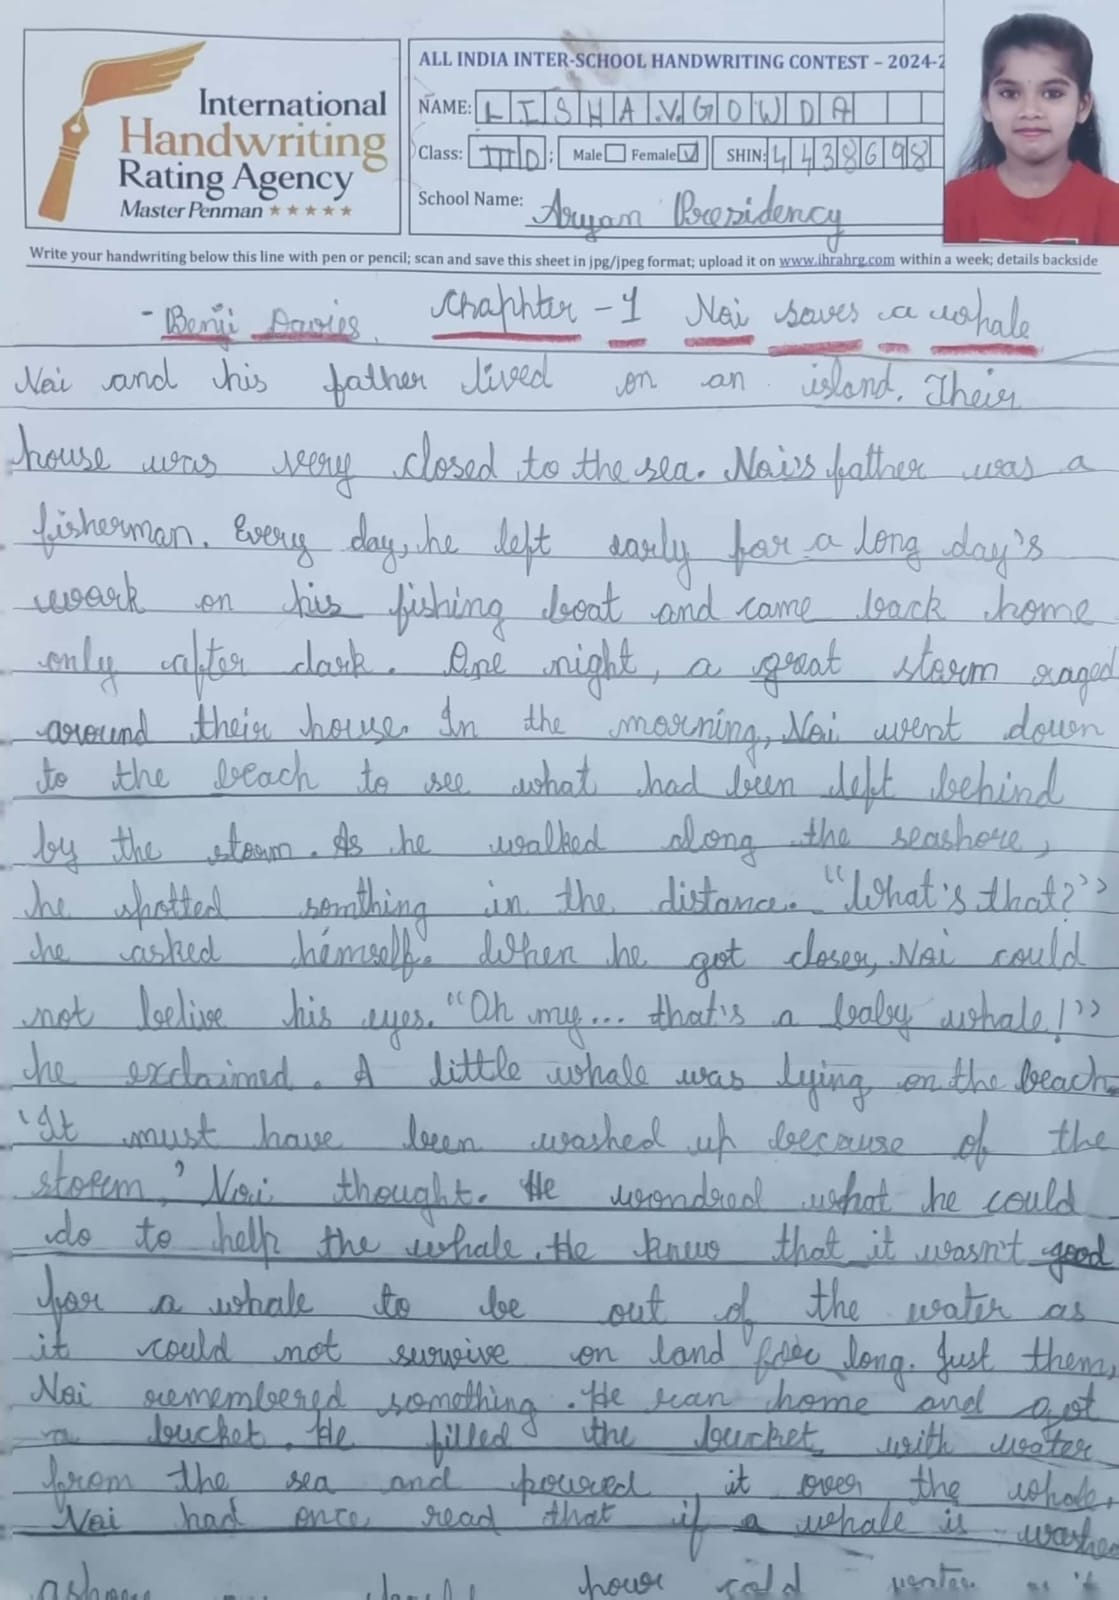 International
Handwriting
Rating Agency
Master Penman
ALL INDIA INTER-SCHOOL HANDWRITING CONTEST – 2024-2
NAME: LISHA.V.GOWDA
Class: III D ; Male Female SHIN: 4438698
School Name: Aryan Presidency
Write your handwriting below this line with pen or pencil; scan and save this sheet in jpg/jpeg format; upload it on www.ihrahrg.com within a week; details backside
- Benji Davies. Chaphter - 1 Noi saves a whale
Noi and his father lived on an island. Their
house was very closed to the sea. Noi's father was a
fisherman. Every day, he left early for a long day's
work on his fishing boat and came back home
only after dark. One night, a great storm raged
around their house. In the morning, Noi went down
to the beach to see what had been left behind
by the storm. As he walked along the seashore,
he spotted somthing in the distance. "What's that?"
he asked himself. When he got closer, Noi could
not belive his eyes. "Oh my... that's a baby whale!"
he exclaimed. A little whale was lying on the beach.
'It must have been washed up because of the
storm,' Noi thought. He wondred what he could
do to help the whale. He knew that it wasn't good
for a whale to be out of the water as
it could not survive on land for long. Just them,
Noi remembered something. He ran home and got
a bucket. He filled the bucket with water
from the sea and poured it over the whale.
Noi had once read that if a whale is washe
pour cold